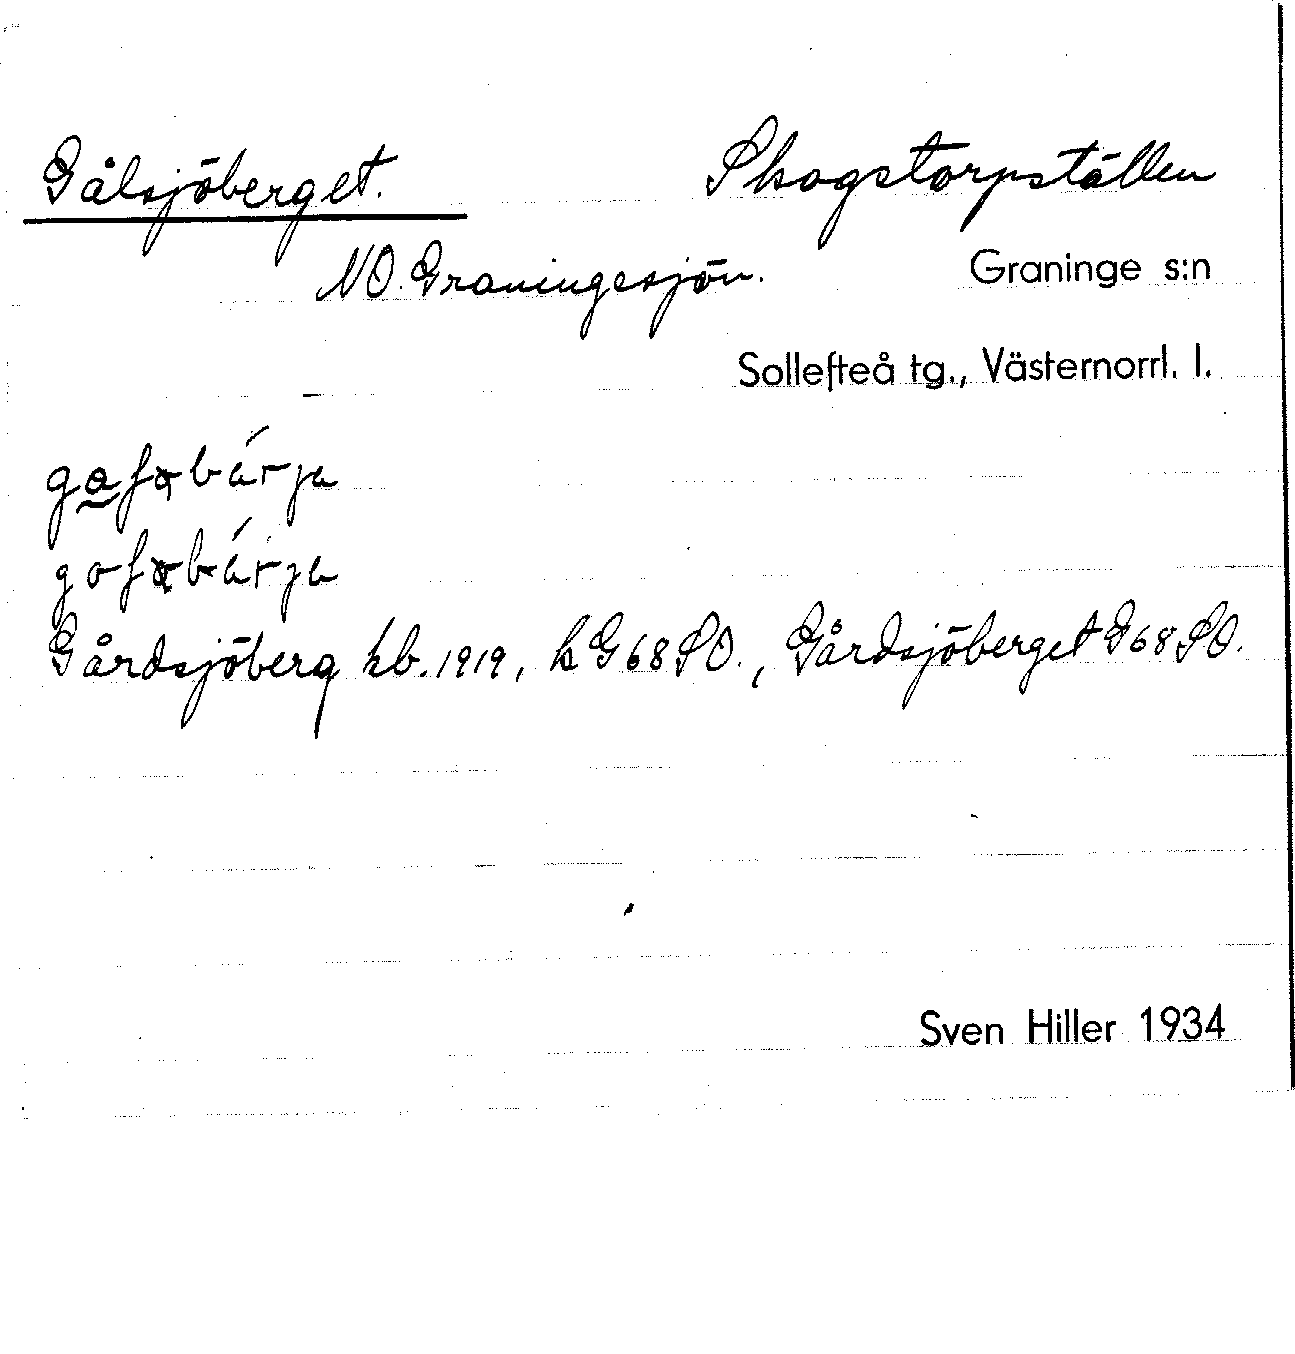 Gålsjöberget. Skogstorpställen
NO. Graningesjön. Graninge s:n
Sollefteå tg., Västernorrl. l.
Gårdsjöberg hb. 1919, k G68SO., Gårdsjöberget G68SO.
Sven Hiller 1934